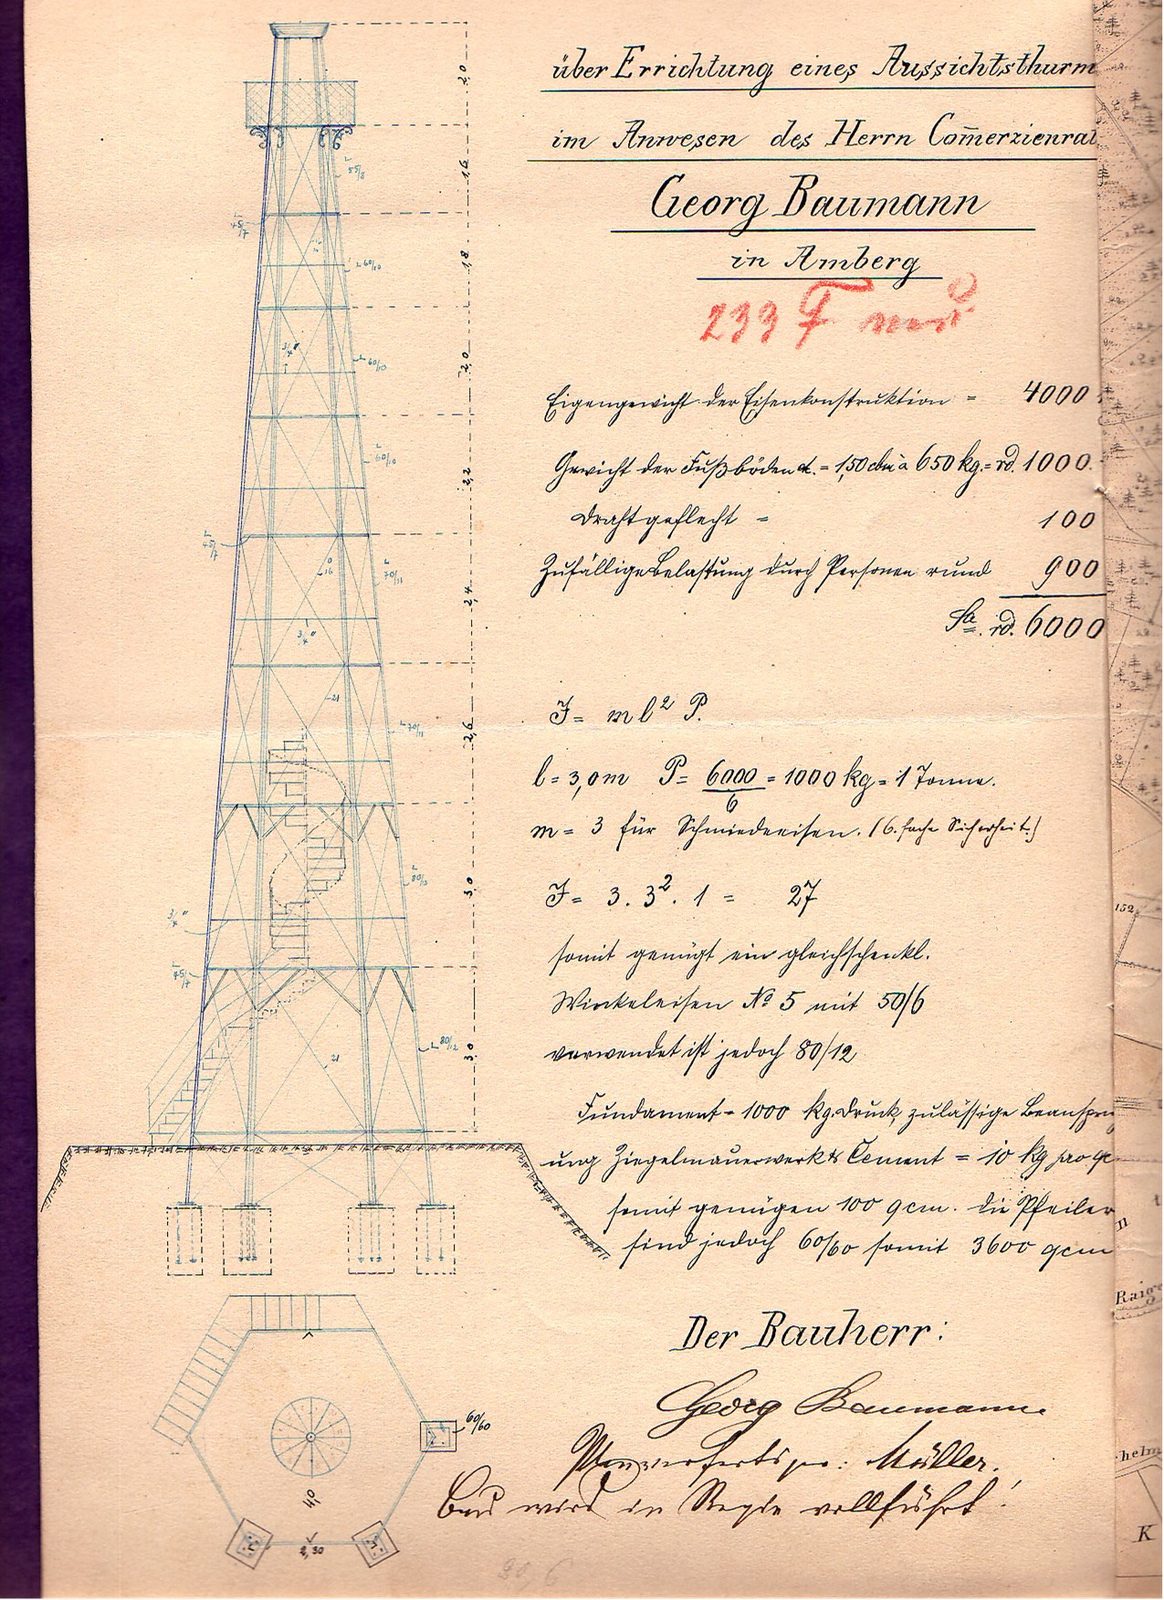 über Errichtung eines Aussichtsthurm
im Anwesen des Herrn Com̅erzienrat
Georg Baumann
in Amberg
233 F
Eigengewicht der Eisenkonstruktion = 4000
Gewicht der Fußböden = 1,50 cbm à 650 kg. = rd. 1000
Drahtgeflecht = 100
Zufällige Belastung durch Personen rund 900
Sa. rd. 6000
J = m l² P.
l = 3,0 m P = 6000/6 = 1000 kg = 1 Tonne.
m = 3 für Schmiedeeisen. (6. fache Sicherheit.)
J = 3 . 3² . 1 = 27
somit genügt ein gleichschenkl.
Winkeleisen No 5 mit 50/6
verwendet ist jedoch 80/12
Fundament = 1000 kg. Druck, zulässige Beanspru
ung Ziegelmauerwerk Cement = 10 kg pro qc
somit genügen 100 qcm. Die Pfeiler
sind jedoch 60/60 somit 3600 qcm
Der Bauherr:
Georg Baumann
Müller.
Bau wird in Regie vollführt!
2,0
1,6
1,8
2,0
2,2
2,4
2,6
3,0
3,0
45/7
60/10
3/4"
60/10
60/10
45/7
70/11
3/4"
21
70/11
80/12
3/4"
45/7
80/12
21
60/60
4,0
2,30
152
Raig
helm
K